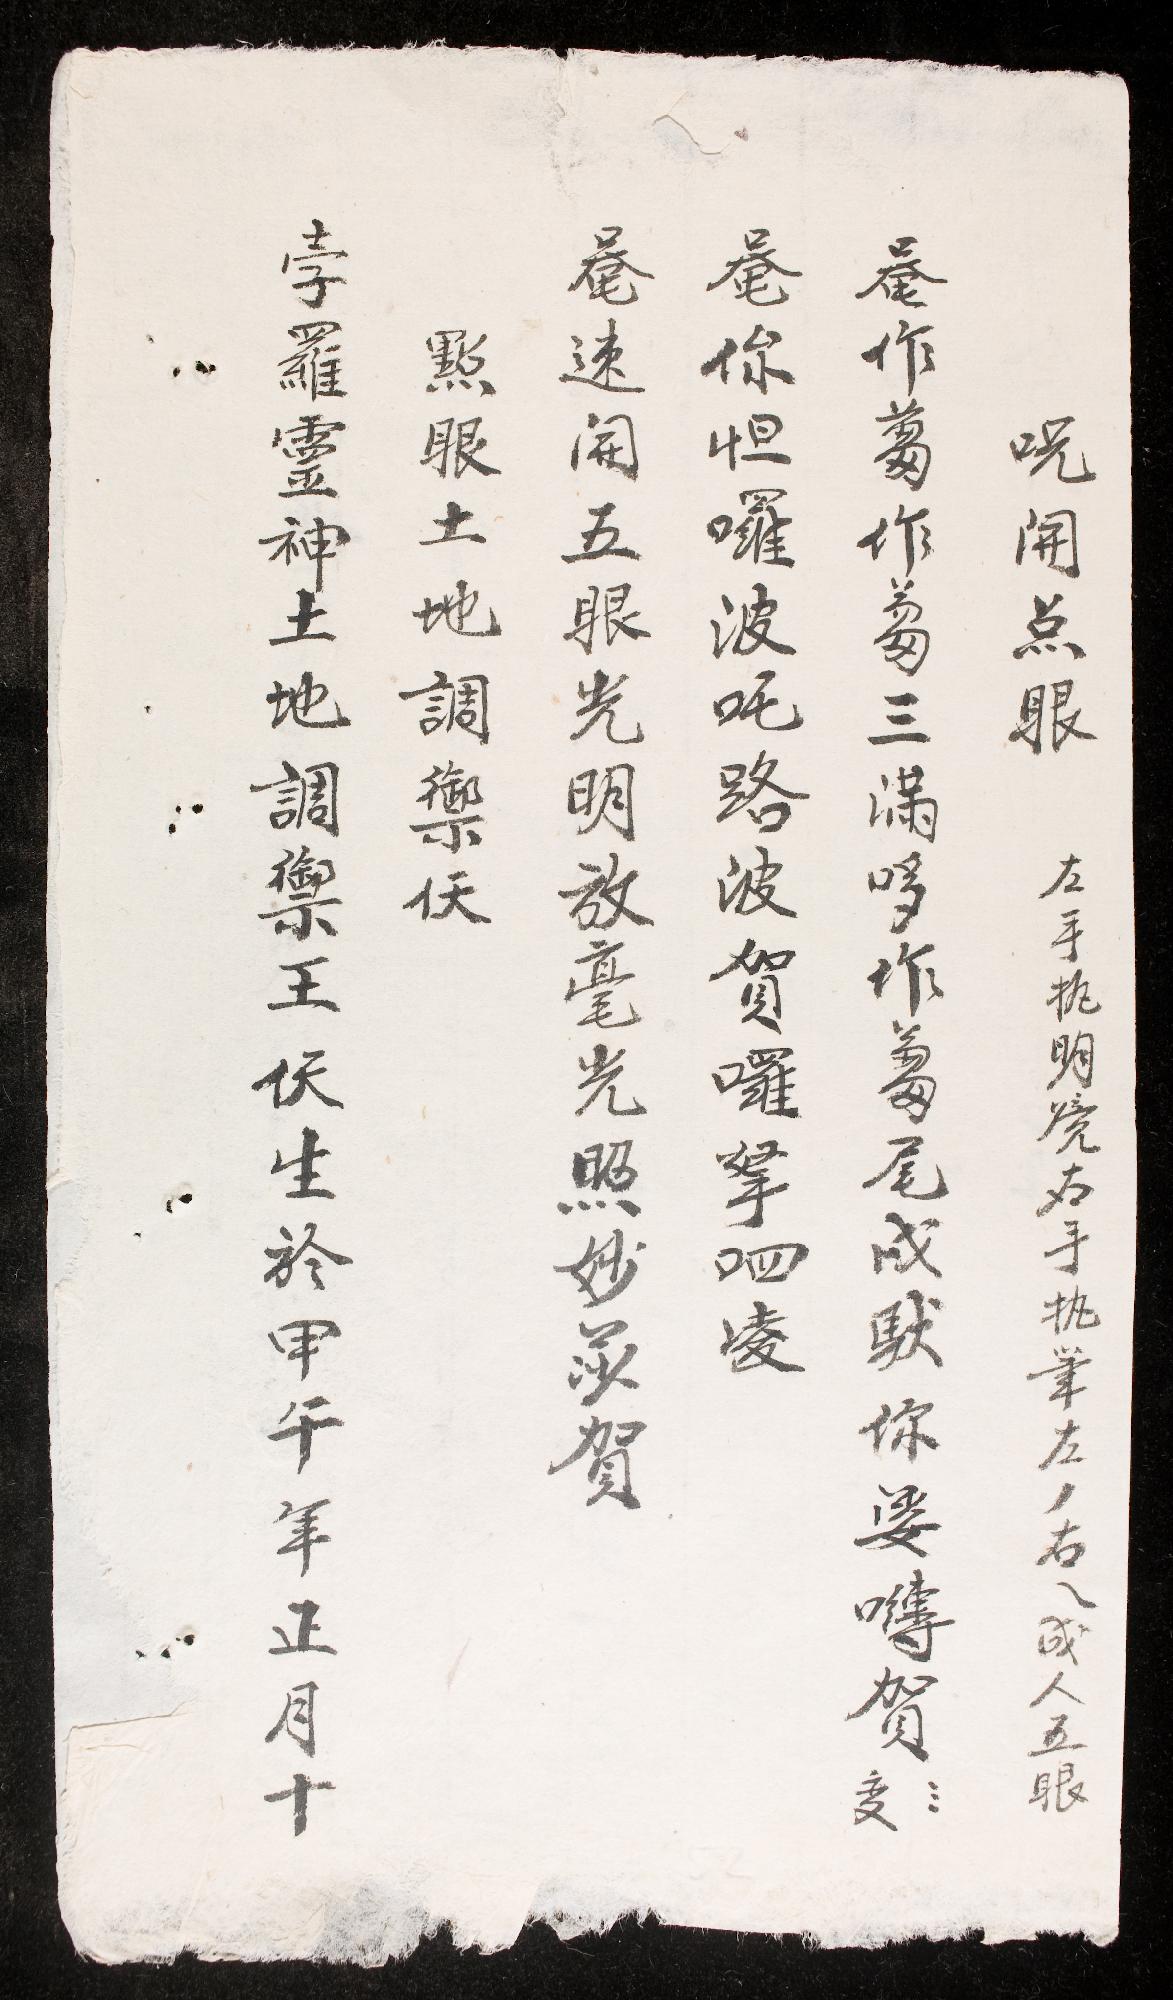 呪開点眼 左手执明鏡右手执筆左丿右乀成人五眼
唵作蒭作蒭三滿哆作蒭尾成馱你娑囀賀三変
唵你怛囉波吒路波賀囉拏呬凌
唵速開五眼光明放毫光照妙莎賀
點眼土地調禦仸
孛羅靈神土地調禦王仸生於甲午年正月十